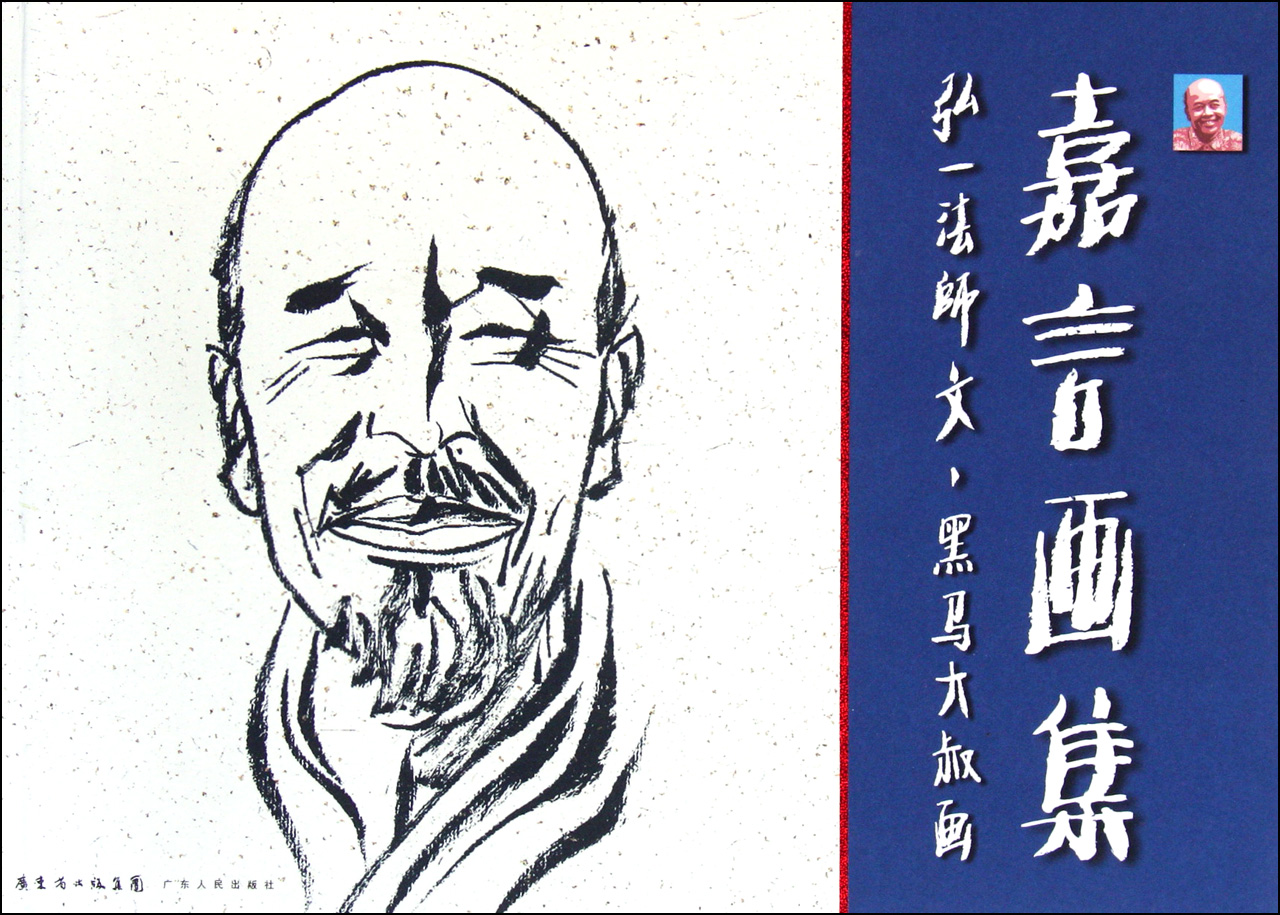 嘉言画集
弘一法師文、黑马大叔画
廣東省出版集團
广东人民出版社